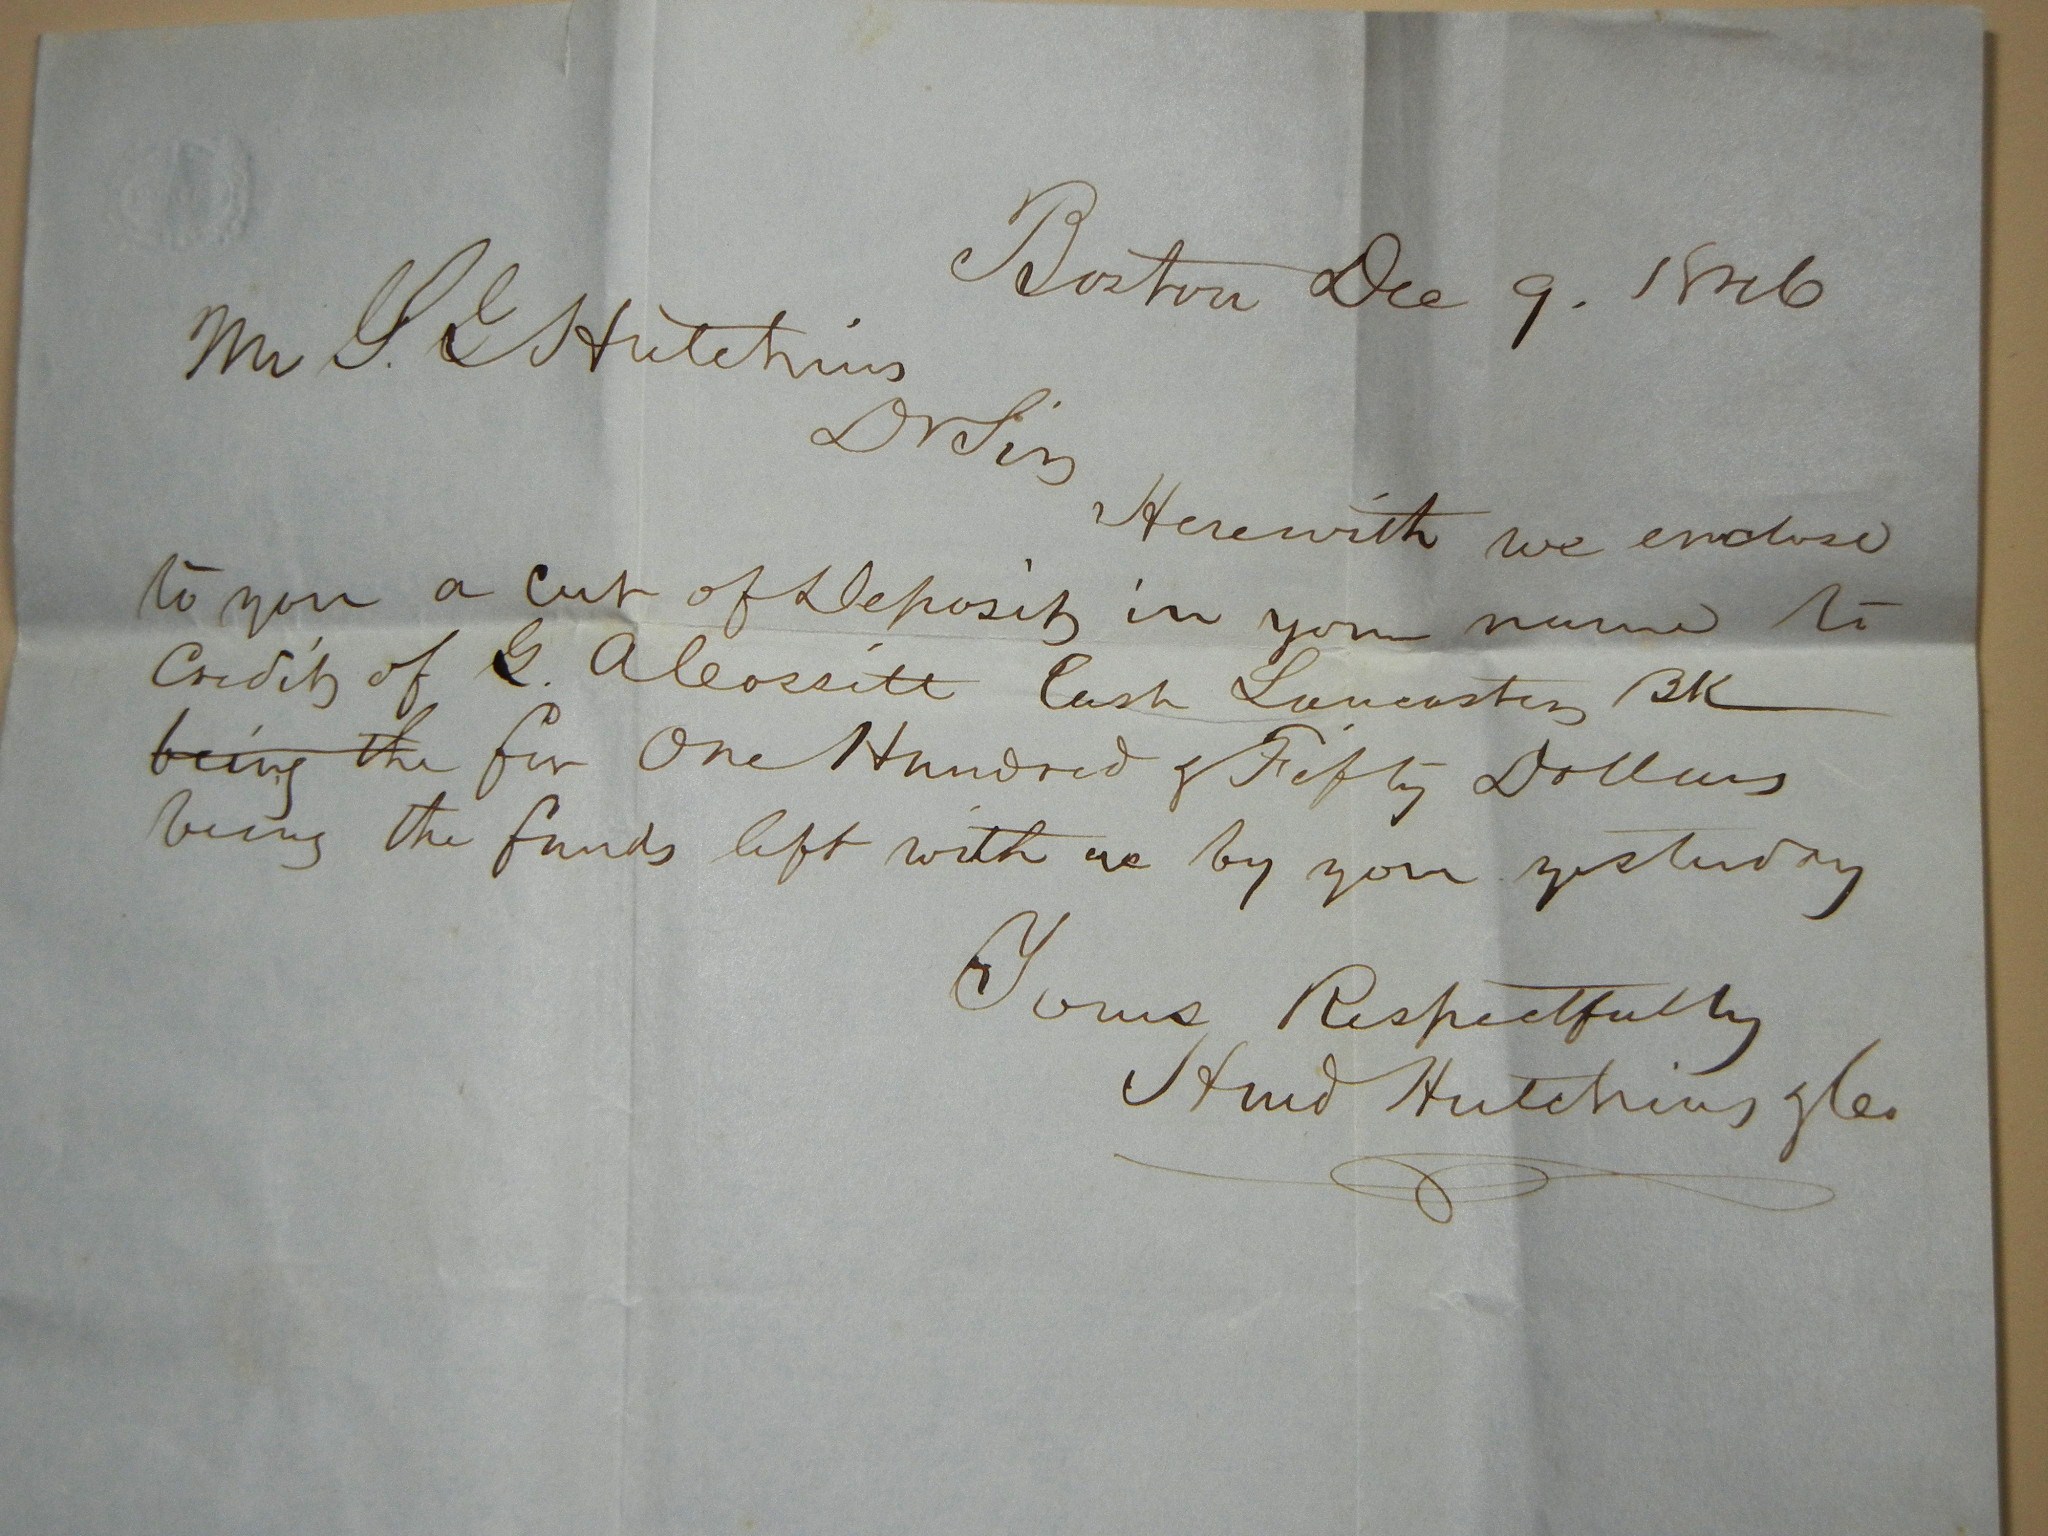 Boston Dec 9. 1846
Mr S. E Hutchins
Dr Sir
Herewith we enclose
to you a Cert of Deposit in your name to
Credit of G. A Cossitt Cash Lancaster BK
being the for One Hundred & Fifty Dollars
being the funds left with us by you yesterday
Yours Respectfully
Hurd Hutchins & Co